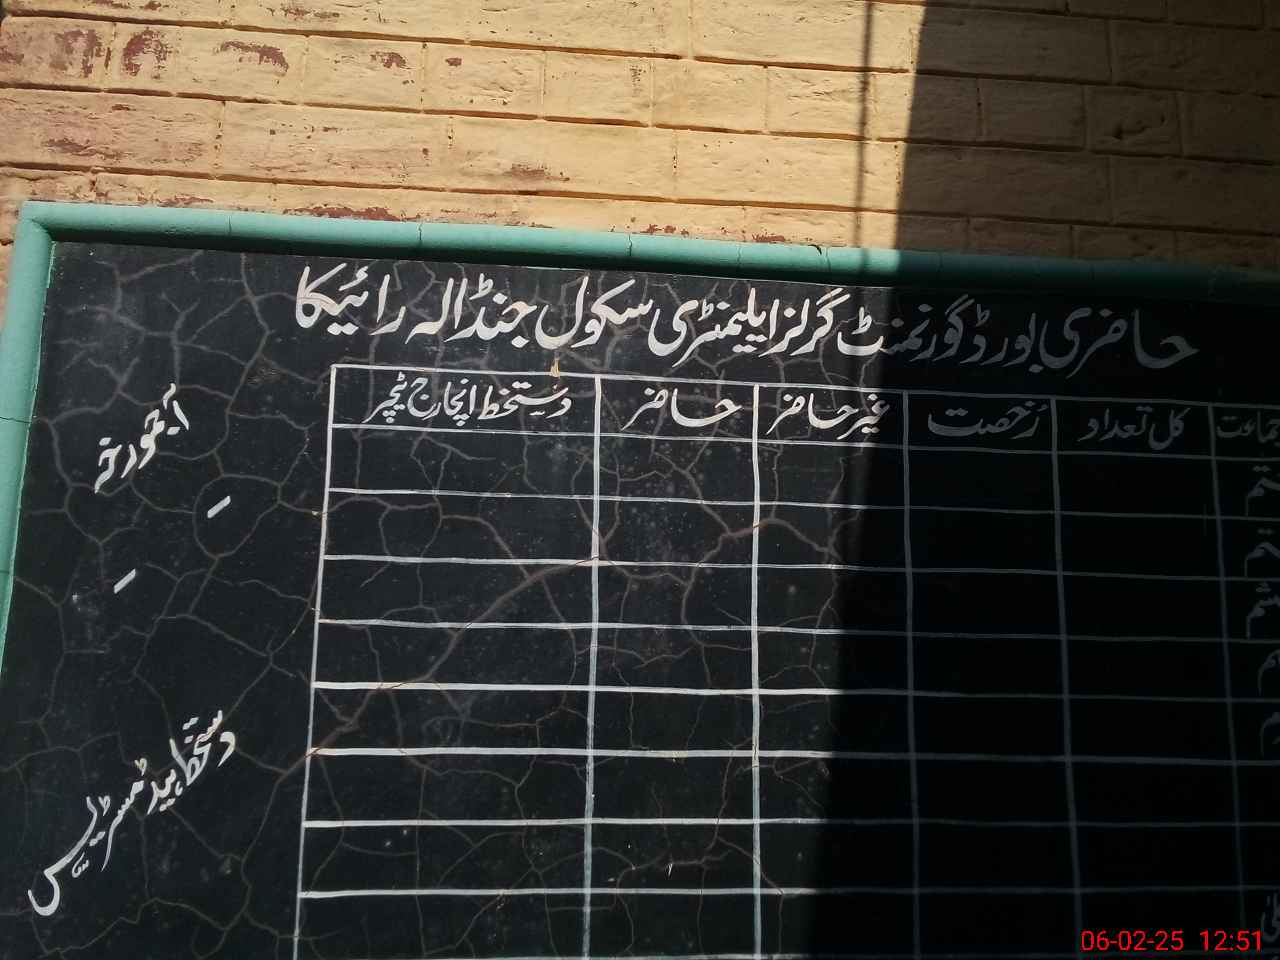 حاضری بورڈ گورنمنٹ گرلز ایلیمنٹری سکول جنڈالہ رائیکا
جماعت کل تعداد رُخصت غیر حاضر حاضر دستخط انچارج ٹیچر
دستخط ہیڈ مسٹریس
06-02-25 12:51